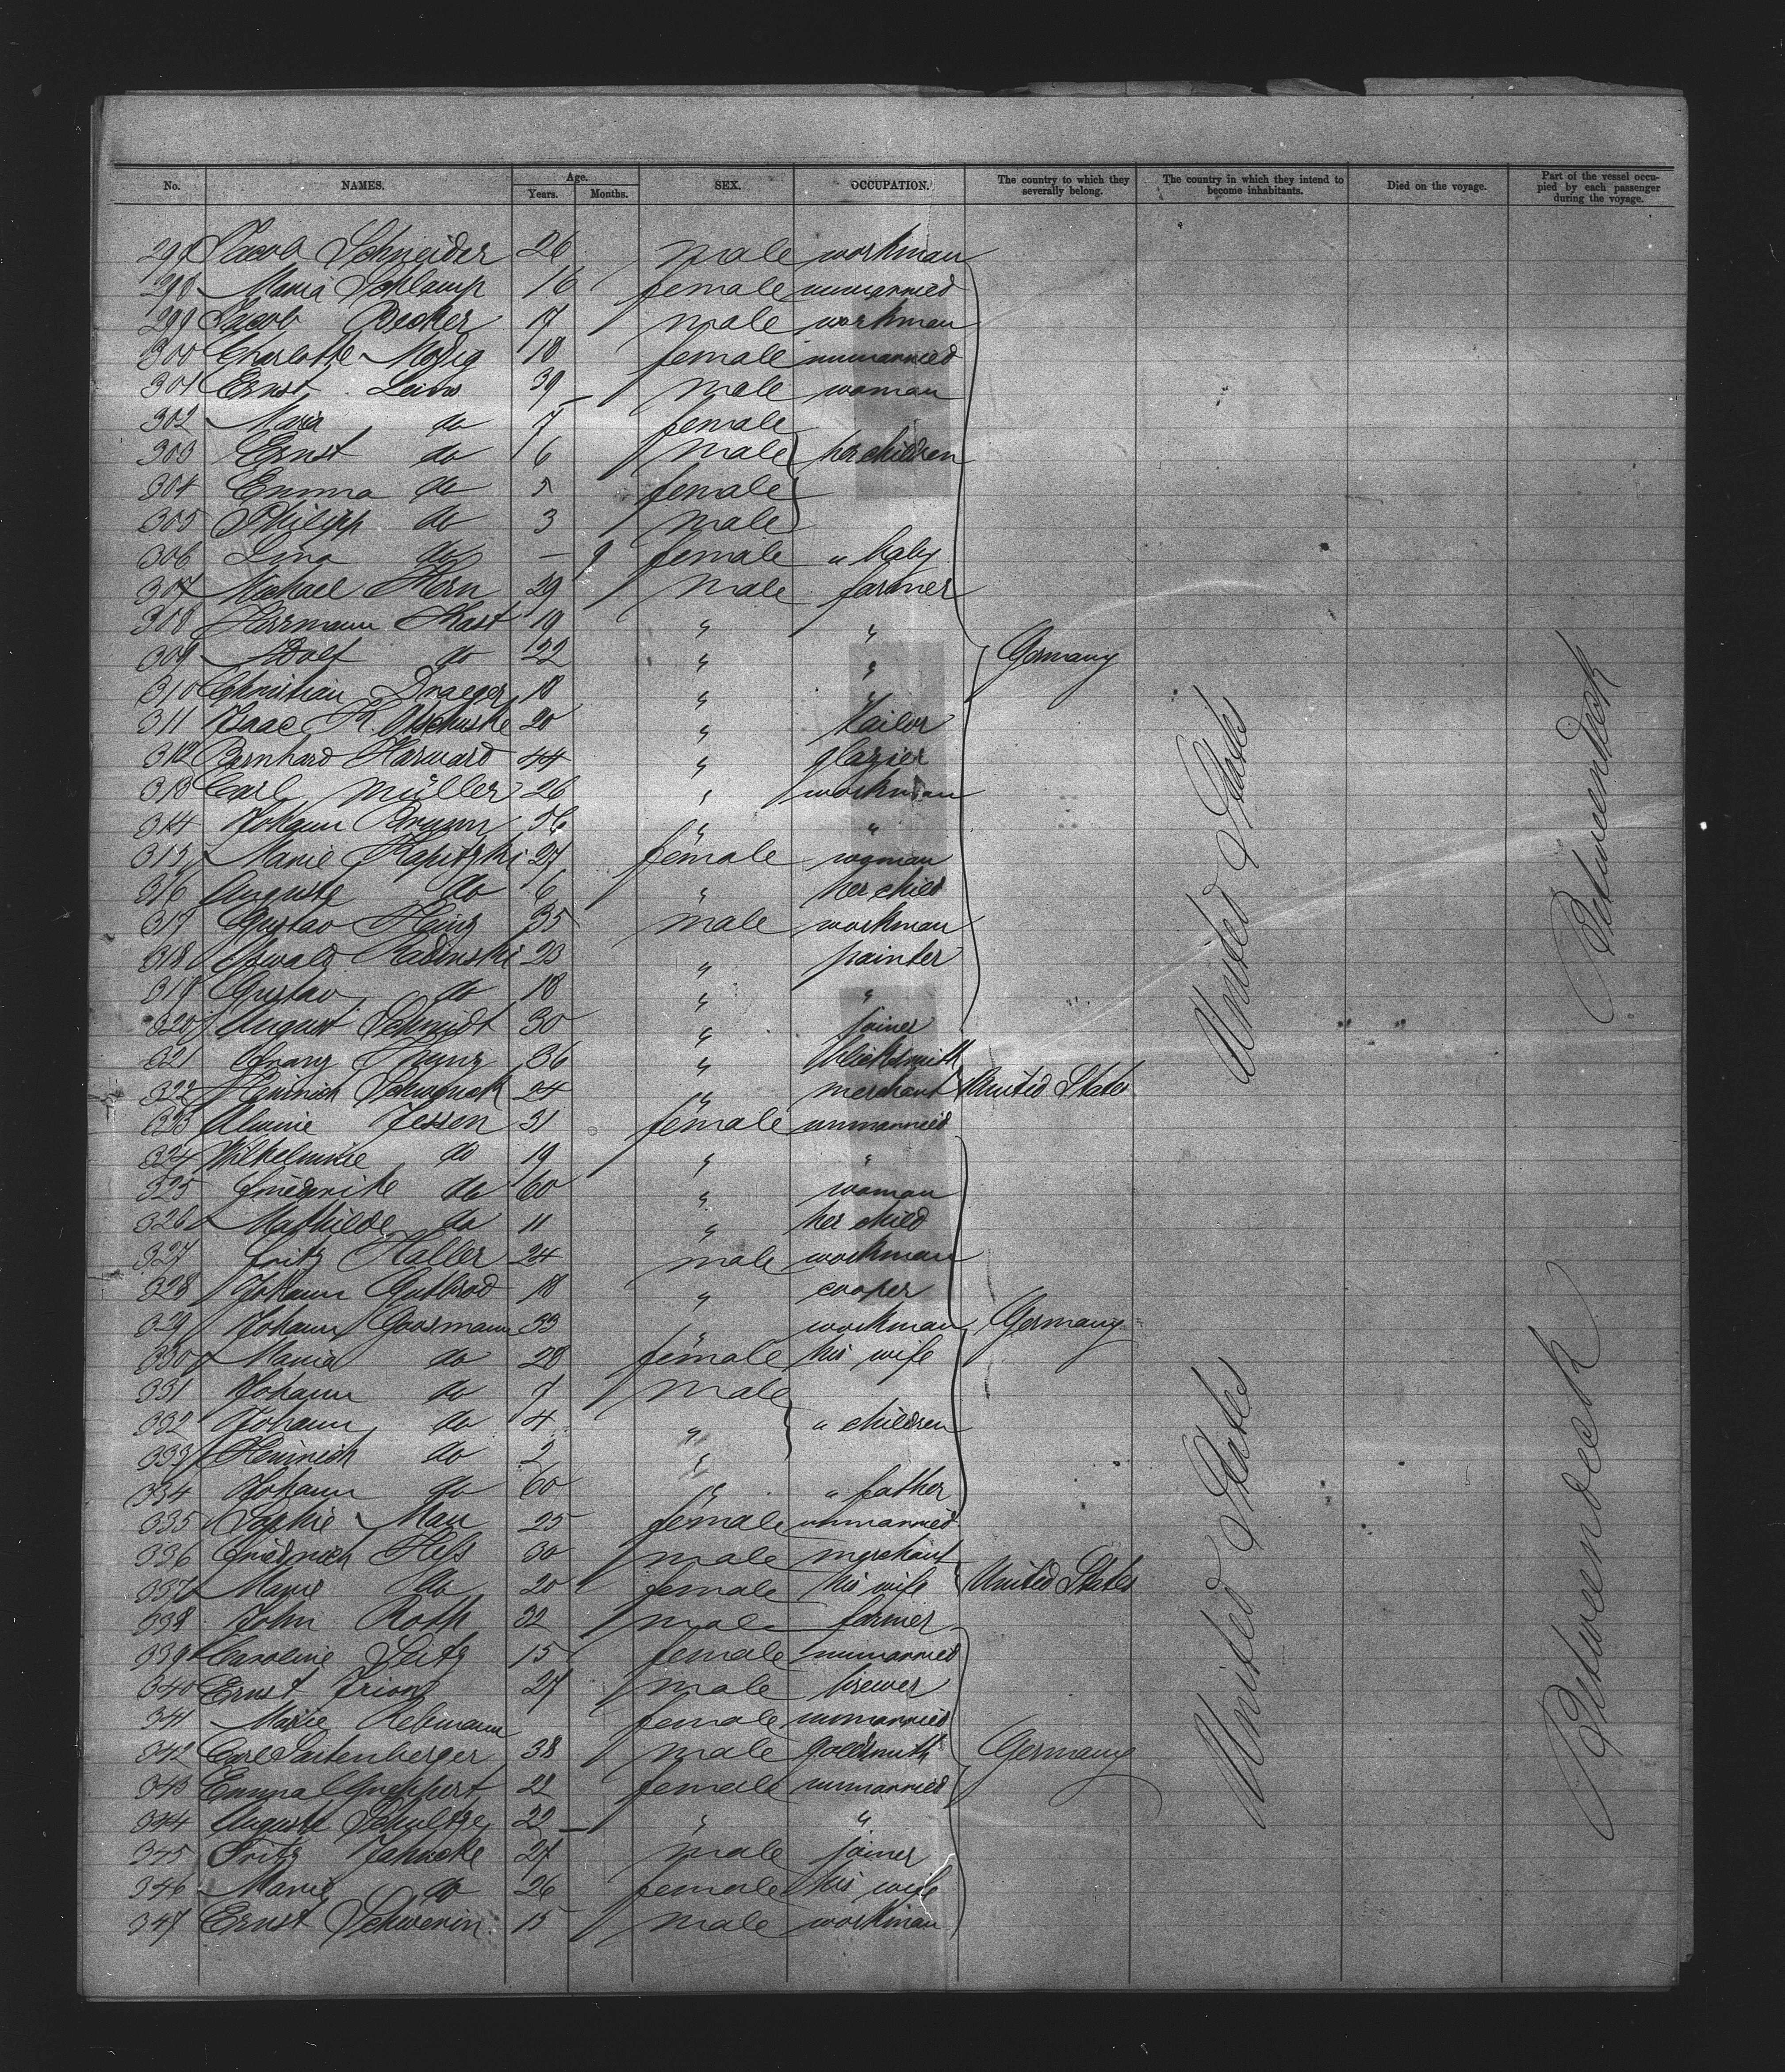 No. NAMES. Age. Years. Months. SEX. OCCUPATION. The country to which they severally belong. The country in which they intend to become inhabitants. Died on the voyage. Part of the vessel occupied by each passenger during the voyage.
297 Jacob Schneider 26 male workman
298 Maria Schlamp 16 female unmarried
299 Jacob Becker 17 male workman
300 Charlotte 18 female unmarried
301 Ernst Leins 39 male woman
302 Maria do 7 female
303 Ernst do 6 male her children
304 Emma do 5 female
305 Philipp do 3 male
306 Lina do — 9 female " baby
307 Michael Horn 29 male farmer
308 Herrmann Kast 19 " "
309 Adolf do 22 " " Germany
310 Christian Draeger 18 " "
311 Isaac 20 " tailor
312 Bernhard Harward 44 " glazier
313 Carl Müller 26 " workman
314 Johann 56 " "
315 Marie Kapitzki 27 female woman
316 Auguste do 6 " her child
317 Gustav Heinz 35 male workman
318 Oswald Radinski 23 " painter
319 Gustav do 18 " "
320 August Schmidt 30 " joiner
321 Franz 36 " blacksmith
322 Heinrich 24 " merchant United States
323 Alwine Jessen 31 female unmarried
324 Wilhelmine do 19 " "
325 Friederike do 60 " woman
326 Mathilde do 11 " her child
327 Fritz Haller 24 male workman
328 Johann Gutbrod 18 " cooper
329 Johann Goosmann 33 " workman Germany
330 Maria do 28 female his wife
331 Johann do 7 male
332 Johann do 4 " " children
333 Heinrich do 2 "
334 Johann do 60 " " father
335 Sophie Mau 25 female unmarried
336 Friedrich Hess 30 male merchant
337 Marie do 20 female his wife United States
338 John Roth 32 male farmer
339 Caroline Seitz 15 female unmarried
340 Ernst Trion 27 male brewer
341 Marie Rebmann female unmarried
342 Carl Sartenberger 38 male goldsmith Germany
343 Emma Gueppert 21 female unmarried
344 Auguste Schultze 22 " "
345 Fritz Jahncke 27 male joiner
346 Marie do 26 female his wife
347 Ernst Schwerin 15 male workman
United States
Betweendeck
United States
Betweendeck